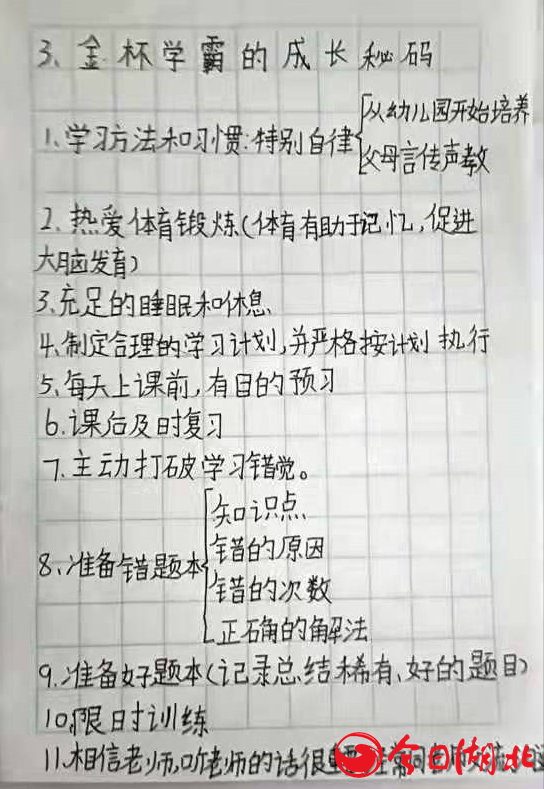 3、金杯学霸的成长秘码
1、学习方法和习惯:特别自律
从幼儿园开始培养
父母言传声教
2、热爱体育锻炼(体育有助于记忆,促进
大脑发育)
3、充足的睡眠和休息、
4、制定合理的学习计划,并严格按计划执行
5、每天上课前,有目的预习
6、课后及时复习
7、主动打破学习错觉。
8、准备错题本
知识点、
错的原因
错的次数
正确的解法
9、准备好题本(记录总结稀有、好的题目)
10、限时训练
11、相信老师,听老师的话很重要
今日湖北